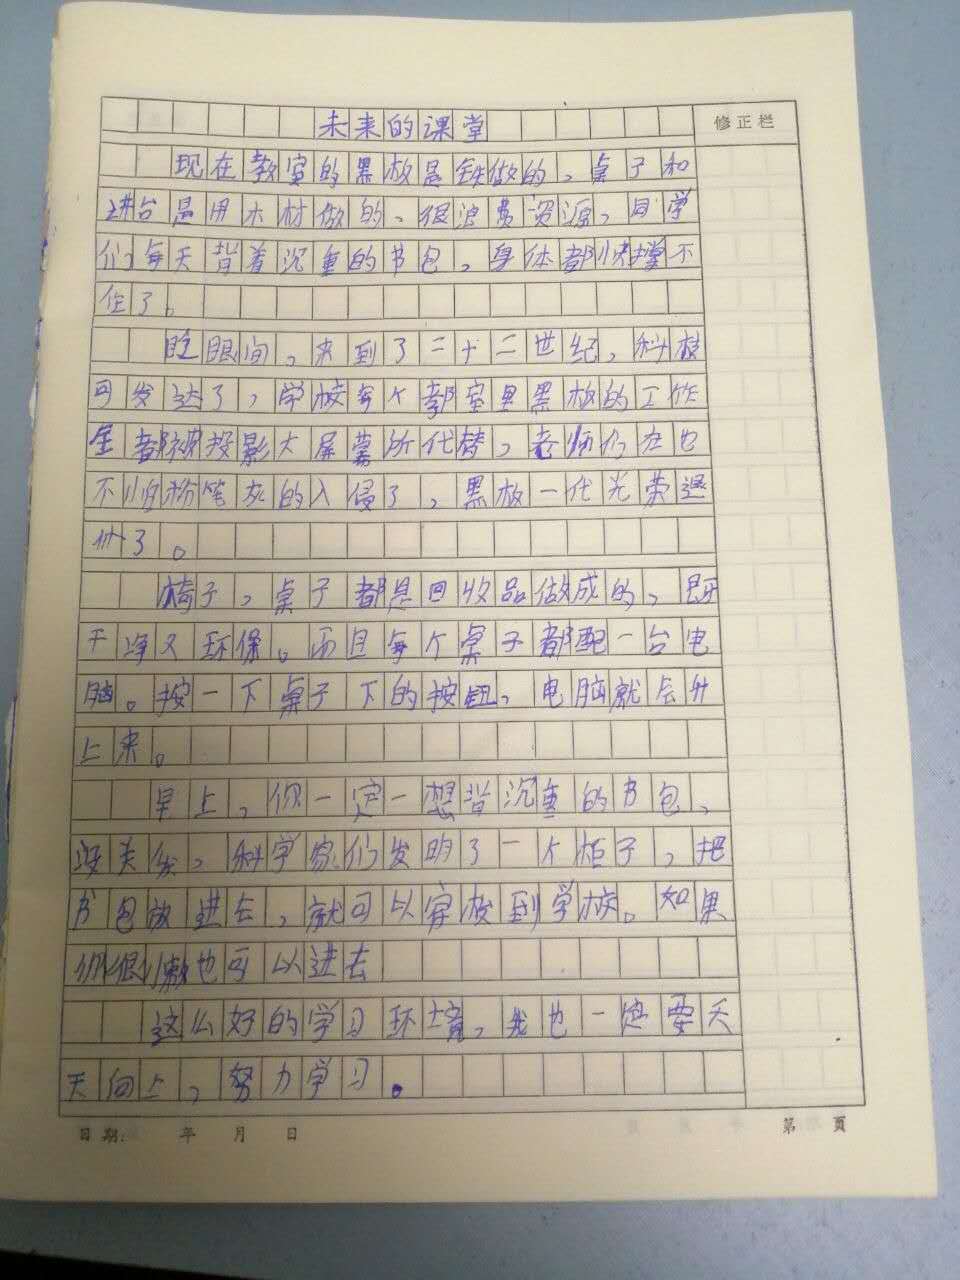 未来的课堂
修正栏
现在教室的黑板是铁做的，桌子和
讲台是用木材做的，很浪费资源，同学
们每天背着沉重的书包，身体都快撑不
住了。
眨眼间，来到了二十二世纪，科技
可发达了，学校每个教室里黑板的工作
全都被投影大屏幕所代替，老师们在也
不怕粉笔灰的入侵了，黑板一代光荣退
休了。
椅子，桌子都是回收品做成的，既
干净又环保。而且每个桌子都配一台电
脑。按一下桌子下的按钮，电脑就会升
上来。
早上，你一定一想背沉重的书包，
没关系，科学家们发明了一个柜子，把
书包放进去，就可以穿梭到学校。如果
你很懒也可以进去
这么好的学习环境，我也一定要天
天向上，努力学习。
日期: 年 月 日
第 頁